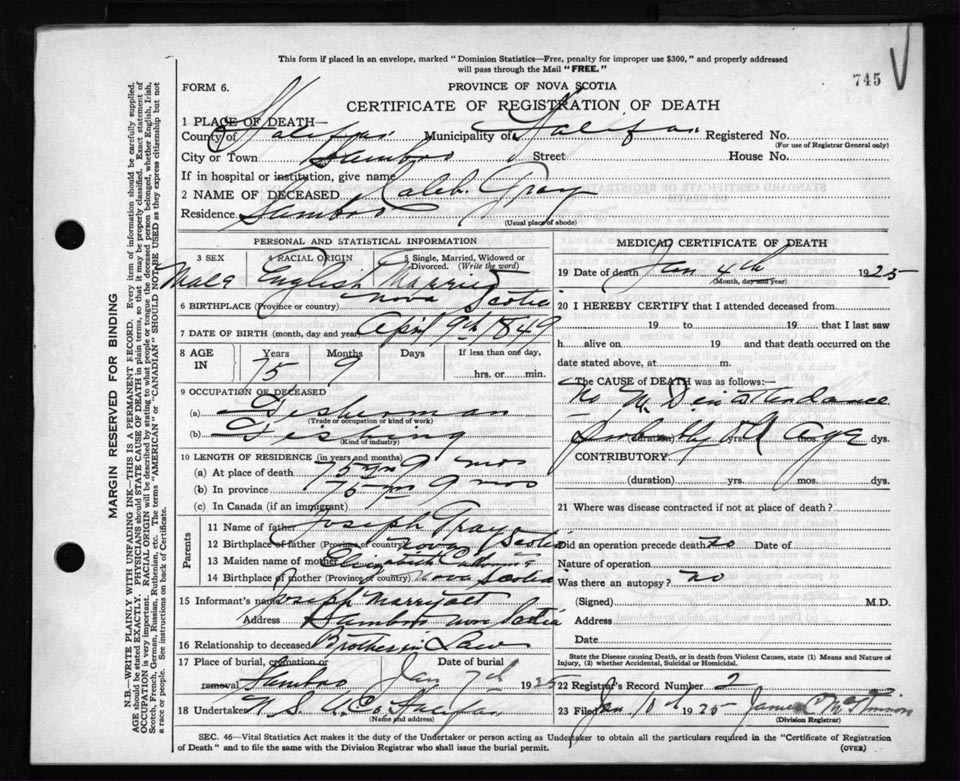 This form if placed in an envelope, marked "Dominion Statistics—Free, penalty for improper use $300," and properly addressed
will pass through the Mail "FREE."
745
FORM 6.
PROVINCE OF NOVA SCOTIA
CERTIFICATE OF REGISTRATION OF DEATH
1 PLACE OF DEATH—
County of Halifax Municipality of Halifax Registered No.
(For use of Registrar General only)
City or Town Sambro Street House No.
If in hospital or institution, give name
2 NAME OF DECEASED Caleb Gray
Residence Sambro
(Usual place of abode)
PERSONAL AND STATISTICAL INFORMATION
3 SEX 4 RACIAL ORIGIN 5 Single, Married, Widowed or Divorced. (Write the word)
Male English Married
6 BIRTHPLACE (Province or country) Nova Scotia
7 DATE OF BIRTH (month, day and year) April 9th 1849
8 AGE IN Years Months Days If less than one day,
75 9 hrs. or min.
9 OCCUPATION OF DECEASED
(a) Fisherman
(Trade or occupation or kind of work)
(b) Fishing
(Kind of industry)
10 LENGTH OF RESIDENCE (in years and months)
(a) At place of death 75 yrs 9 mos
(b) In province 75 yrs 9 mos
(c) In Canada (if an immigrant)
Parents
11 Name of father Joseph Gray
12 Birthplace of father (Province of country) Nova Scotia
13 Maiden name of mother Elizabeth
14 Birthplace of mother (Province of country) Nova Scotia
15 Informant's name Joseph Marryatt
Address Sambro Nova Scotia
16 Relationship to deceased Brother in Law
17 Place of burial, cremation or removal Date of burial
Sambro Jan 7th 1925
18 Undertaker N. S. U. Co. Halifax
(Name and address)
MEDICAL CERTIFICATE OF DEATH
19 Date of death Jan 4th 1925
(Month, day and year)
20 I HEREBY CERTIFY that I attended deceased from
19 to 19 that I last saw
h alive on 19 and that death occurred on the
date stated above, at m.
The CAUSE of DEATH was as follows:—
No M. D in attendance
probably Old Age
(duration) yrs. mos. dys.
CONTRIBUTORY
(duration) yrs. mos. dys.
21 Where was disease contracted if not at place of death?
Did an operation precede death no Date of
Nature of operation
Was there an autopsy? no
(Signed) M.D.
Address
Date
State the Disease causing Death, or in death from Violent Causes, state (1) Means and Nature of
Injury, (2) whether Accidental, Suicidal or Homicidal.
22 Registrar's Record Number 2
23 Filed Jan 10th 1925 James
(Division Registrar)
SEC. 46—Vital Statistics Act makes it the duty of the Undertaker or person acting as Undertaker to obtain all the particulars required in the "Certificate of Registration
of Death" and to file the same with the Division Registrar who shall issue the burial permit.
(OVER)
MARGIN RESERVED FOR BINDING
N.B.—WRITE PLAINLY WITH UNFADING INK—THIS IS A PERMANENT RECORD. Every item of information should be carefully supplied.
AGE should be stated EXACTLY. PHYSICIANS should STATE CAUSE OF DEATH in plain terms, so that it may be properly classified. Exact statement of
OCCUPATION is very important. RACIAL ORIGIN will be described by stating to what people or tongue the deceased person belonged, whether English, Irish,
Scotch, French, German, Russian, Ruthenian, etc. The terms "AMERICAN" or "CANADIAN" SHOULD NOT BE USED as they express citizenship but not
a race or people. See instructions on back of Certificate.